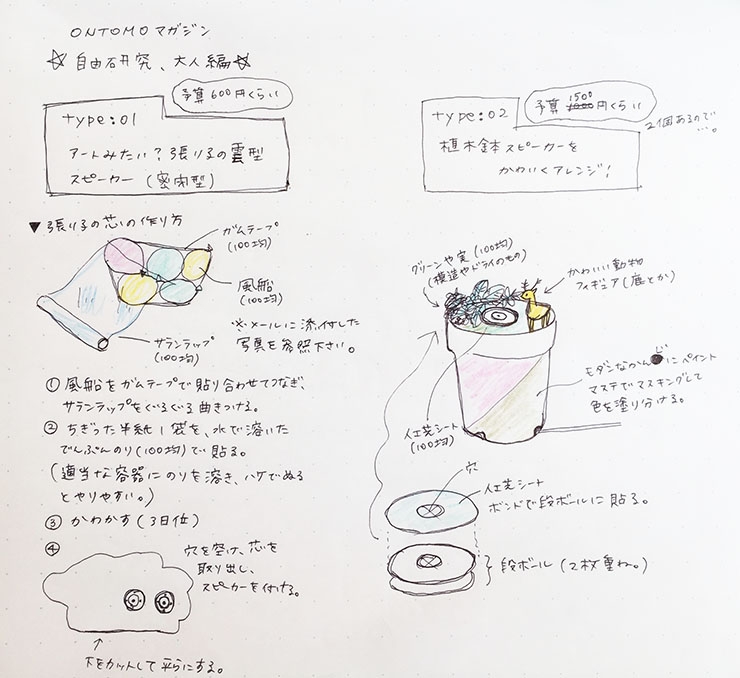 ONTOMO マガジン
☆自由研究、大人編☆
予算600円くらい
type:01
アートみたい?張り子の雲型
スピーカー(密閉型)
▼張り子の芯の作り方
ガムテープ
(100均)
風船
(100均)
※メールに添付した
写真を参照下さい。
サランラップ
(100均)
①風船をガムテープで貼り合わせてつなぎ、
サランラップをぐるぐる曲きつける。
②ちぎった半紙1袋を、水で溶いた
でんぷんのり(100均)で貼る。
(適当な容器にのりを溶き、ハケでぬる
とやりやすい。)
③かわかす(3日位)
④
穴を空け、芯を
取り出し、
スピーカーを付ける。
下をカットして平らにする。
予算1500円くらい
2個あるので…。
type:02
植木鉢スピーカーを
かわいくアレンジ!
グリーンや実(100均)
(模造やドライのもの)
かわいい動物
フィギュア(鹿とか)
モダンなかんじにペイント
マステでマスキングして
色を塗り分ける。
人工芝シート
(100均)
穴
人工芝シート
ボンドで段ボールに貼る。
段ボール(2枚重ね。)